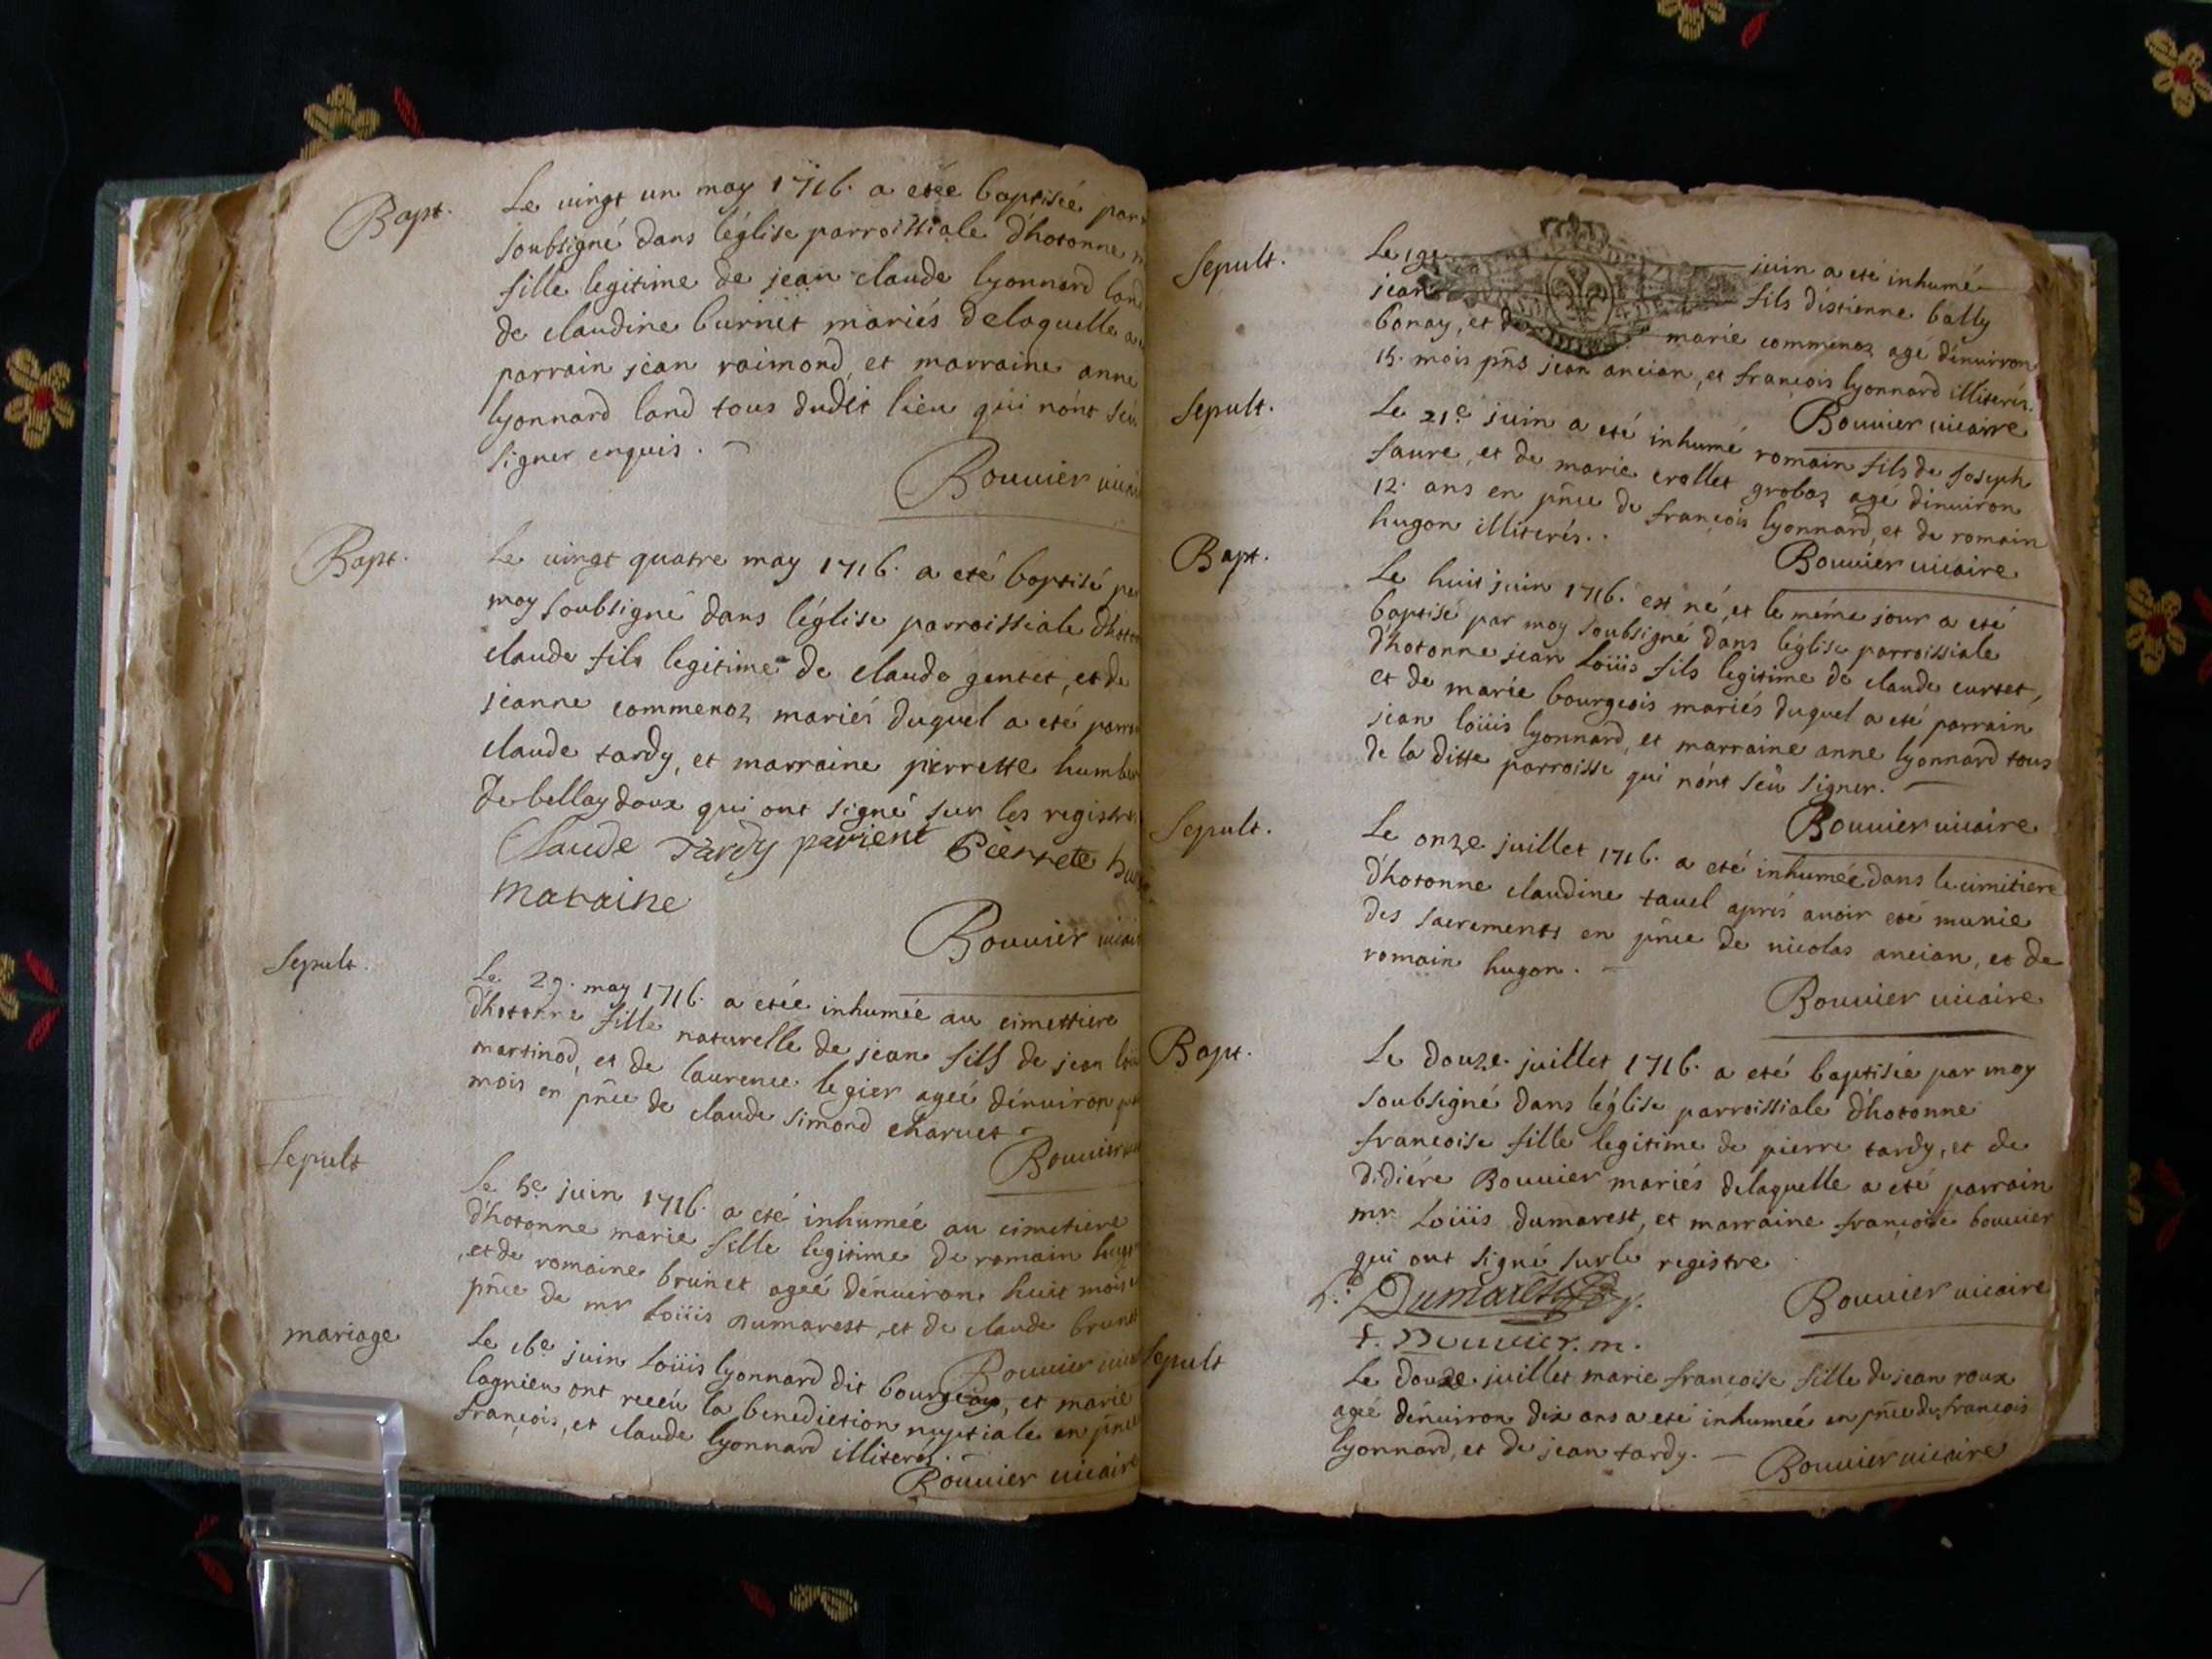 Bapt.
Le vingt un may 1716. a etée baptisée par
soubsigné dans l'église parroissiale d'hotonne
fille legitime de jean claude lyonnard land
de claudine burnet mariés delaquelle a
parrain jean raimond, et marraine anne
lyonnard land tous dudit lieu qui n'ont seu
signer enquis.
Bouvier vicai
Bapt.
Le vingt quatre may 1716. a eté baptisé par
moy soubsigné dans l'église parroissiale d'hoton
claude fils legitime de claude gentet, et de
jeanne commenoz mariés duquel a eté parra
claude tardy, et marraine pierrette humber
de bellaydoux qui ont signé sur les registre
Claude Tardy parient Pierrete hu
maraine
Bouvier vicai
Sepult.
Le 29. may 1716. a etée inhumée au cimettiere
d'hotonne fille naturelle de jean fils de jean loüi
martinod, et de laurence legier ageé d'enuiron
mois en pñce de claude simond charuet
Bouvier
Sepult
Le 5e juin 1716. a eté inhumée au cimetiere
d'hotonne marie fille legitime de romain hugon
et de romaine brunet ageé d'enuiron huit mois
pñce de mr loüis dumarest, et de claude brunet
Bouvier vicai
mariage
Le 16e juin loüis lyonnard dit bourgeois, et marie
lagnieu ont receu la benediction nuptiale en pñce
françois, et claude lyonnard illiterés.
Bouvier vicaire
Sepult.
Le 19e juin a eté inhumé
jean fils d'estienne bally
bonay, et de marie commenoz agé d'enuiron
15. mois pñs jean ancian, et françois lyonnard illiterés.
Bouvier vicaire
Sepult.
Le 21e juin a eté inhumé romain fils de joseph
faure, et de marie crollet groboz agé d'enuiron
12. ans en pñce de françois lyonnard, et de romain
hugon illiterés.
Bouvier vicaire
Bapt.
Le huit juin 1716. est né, et le méme jour a eté
baptisé par moy soubsigné dans l'église parroissiale
d'hotonne jean loüis fils legitime de claude curtet,
et de marie bourgeois mariés duquel a eté parrain
jean loüis lyonnard, et marraine anne lyonnard tous
de la ditte parroisse qui n'ont seu signer.
Bouvier vicaire
Sepult.
Le onze juillet 1716. a eté inhumée dans le cimitiere
d'hotonne claudine tauel aprés auoir eté munie
des sacrements en pñce de nicolas ancian, et de
romain hugon.
Bouvier vicaire
Bapt.
Le douze juillet 1716. a eté baptisée par moy
soubsigné dans l'église parroissiale d'hotonne
francoise fille legitime de pierre tardy, et de
didiére Bouvier mariés delaquelle a eté parrain
mr. Loüis dumarest, et marraine françoise bouvier
qui ont signé sur le registre
Dumarest
Bouvier vicaire
f. Bouvier. m.
Sepult
Le douze juillet marie françoise fille de jean roux
ageé d'enuiron dix ans a eté inhumeé en pñce de francois
lyonnard, et de jean tardy.
Bouvier vicaire